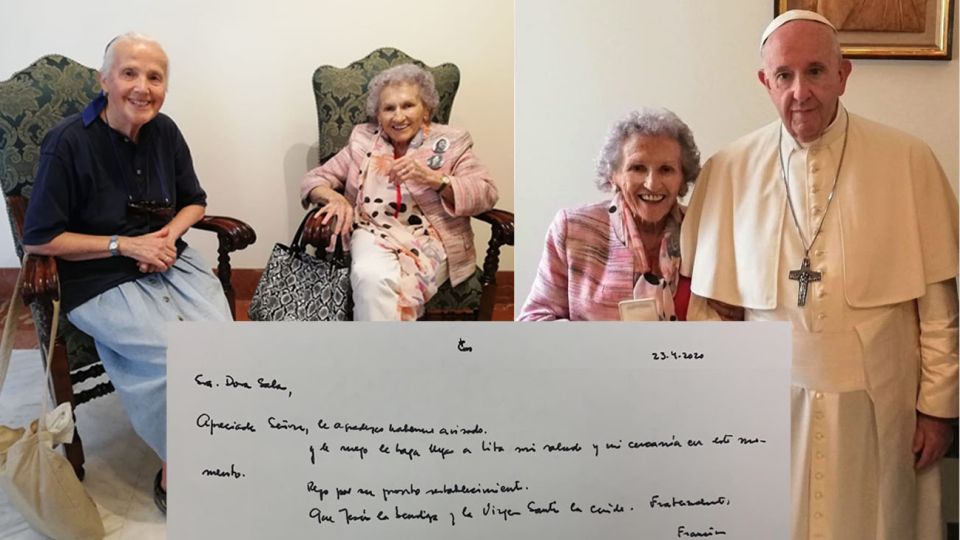 23.4.2020
Sra. Dora Sala,
Apreciada Señora, le agradezco habernos avisado.
y le ruego le haga llegar a Lita mi saludo y mi cercanía en este mo-
mento.
Rezo por su pronto restablecimiento.
Que Jesús la bendiga y la Virgen Santa la cuide. Fraternalmente,